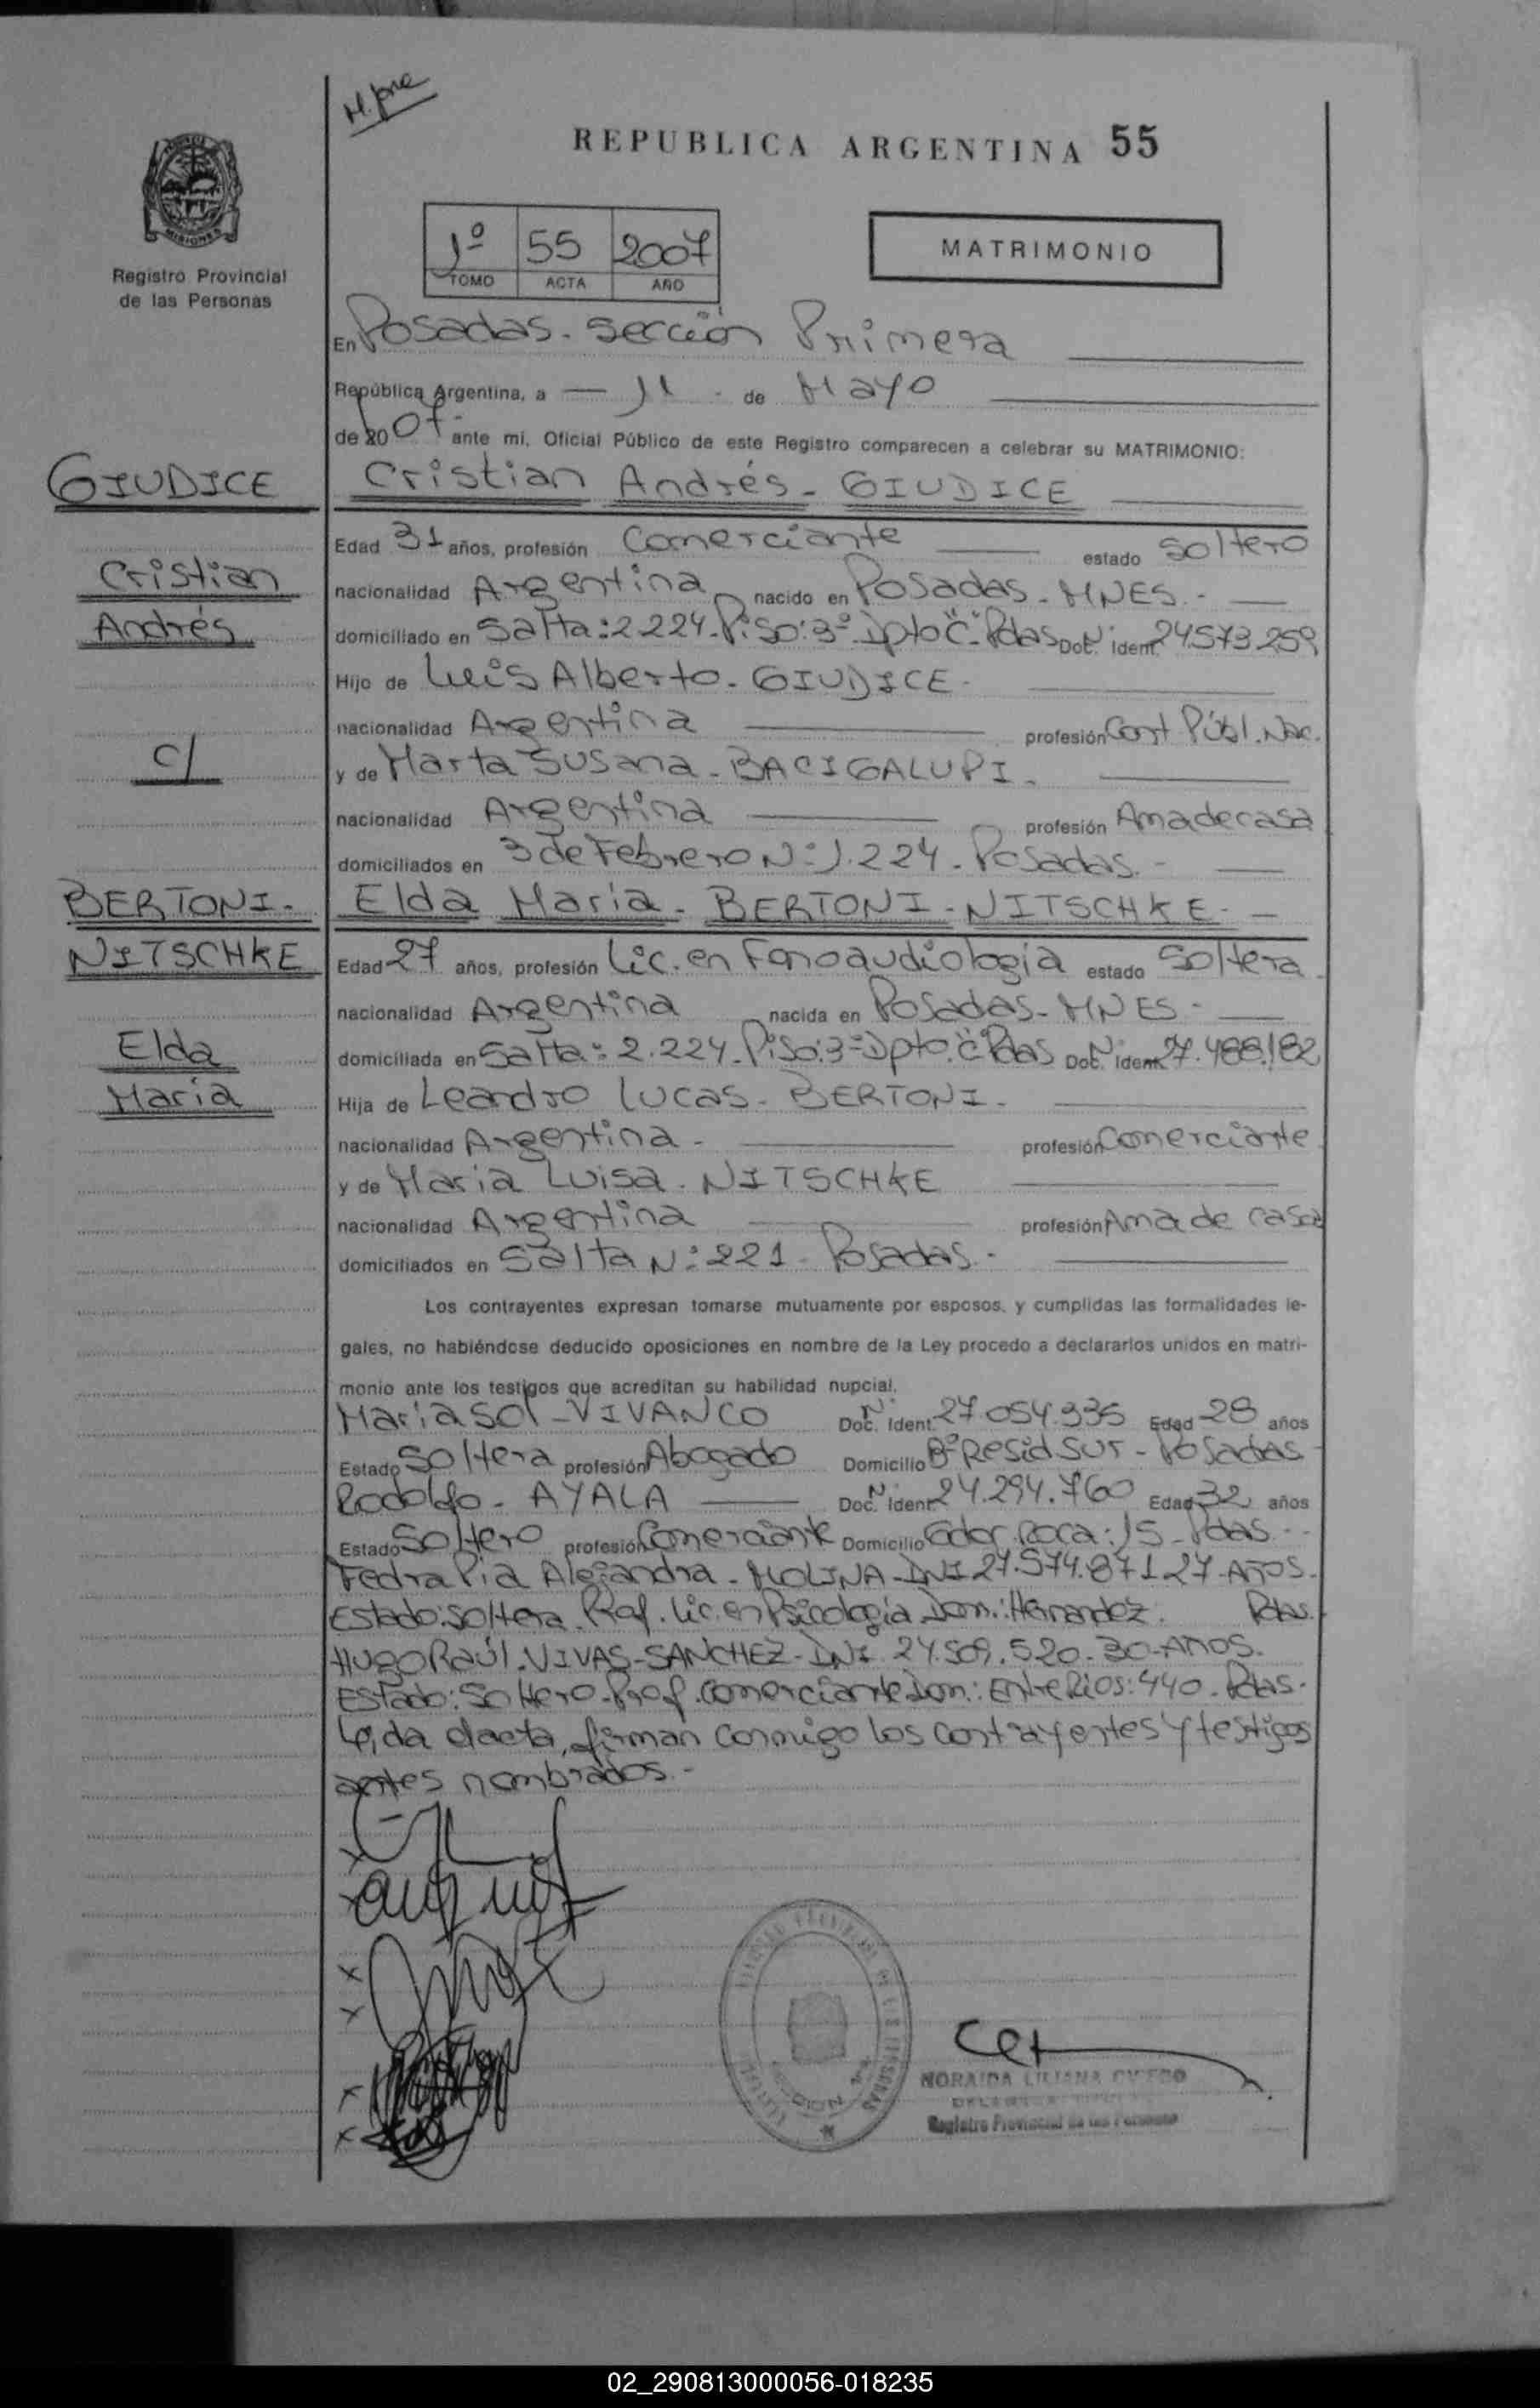 H. pne
REPUBLICA ARGENTINA 55
MISIONES
Registro Provincial
de las Personas
1º 55 2007
TOMO ACTA AÑO
MATRIMONIO
En Posadas - Sección Primera
República Argentina, a - 11 - de Mayo
de 2007 ante mi, Oficial Público de este Registro comparecen a celebrar su MATRIMONIO:
GIUDICE
Cristian Andrés - GIUDICE
Edad 31 años, profesión Comerciante estado Soltero
Cristian
nacionalidad Argentina nacido en Posadas - MNES. -
Andrés
domiciliado en Salta: 2.224 - Piso: 3º Dpto "C" - Pdas Doc. N° Ident. 24.573.259
Hijo de Luis Alberto - GIUDICE -
nacionalidad Argentina profesión Cont. Públ. Nac.
c/
y de Marta Susana - BACIGALUPI -
nacionalidad Argentina profesión Ama de casa
domiciliados en 3 de Febrero N: 1.224 - Posadas. -
BERTONI -
Elda María - BERTONI - NITSCHKE - -
NITSCHKE
Edad 27 años, profesión Lic. en Fonoaudiología estado Soltera
nacionalidad Argentina nacida en Posadas - MNES -
Elda
domiciliada en Salta: 2.224 - Piso: 3º Dpto. "C" Pdas Doc. N° Ident. 27.488.182
María
Hija de Leandro Lucas - BERTONI -
nacionalidad Argentina - profesión Comerciante
y de María Luisa - NITSCHKE
nacionalidad Argentina profesión Ama de casa
domiciliados en Salta N: 221 - Posadas. -
Los contrayentes expresan tomarse mutuamente por esposos, y cumplidas las formalidades le-
gales, no habiéndose deducido oposiciones en nombre de la Ley procedo a declararlos unidos en matri-
monio ante los testigos que acreditan su habilidad nupcial.
María Sol - VIVANCO Doc. N° Ident. 27.054.335 Edad 28 años
Estado Soltera profesión Abogado Domicilio Bº Resid Sur - Posadas
Rodolfo - AYALA Doc. N° Ident. 24.294.760 Edad 32 años
Estado Soltero profesión Comerciante Domicilio Gdor. Roca: 15 - Pdas. -
Fedra Pia Alejandra - MOLINA - DNI 27.574.871 27 - Años.
Estado: Soltera. Prof. Lic. en Psicología Dom.: Hernandez. Pdas.
Hugo Raúl - VIVAS - SANCHEZ - DNI 24.509.520 - 30 - Años.
Estado: Soltero - Prof. comerciante Dom.: Entre Rios: 440 - Pdas.
Leída el acta, firman conmigo los contrayentes y testigos
antes nombrados. -
NORAIDA LILIANA OVIEDO
Registro Provincial de las Personas
02_290813000056-018235